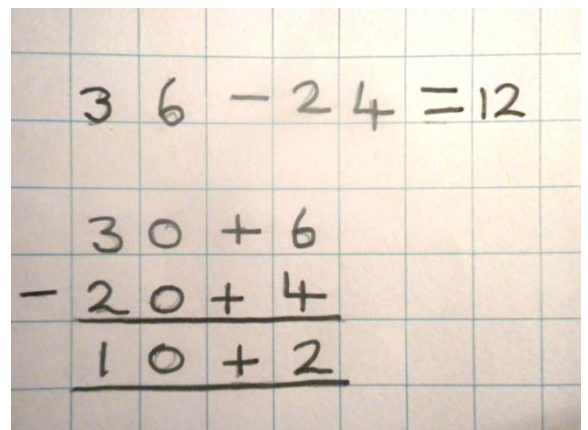 36 - 24 = 12
30 + 6
- 20 + 4
10 + 2